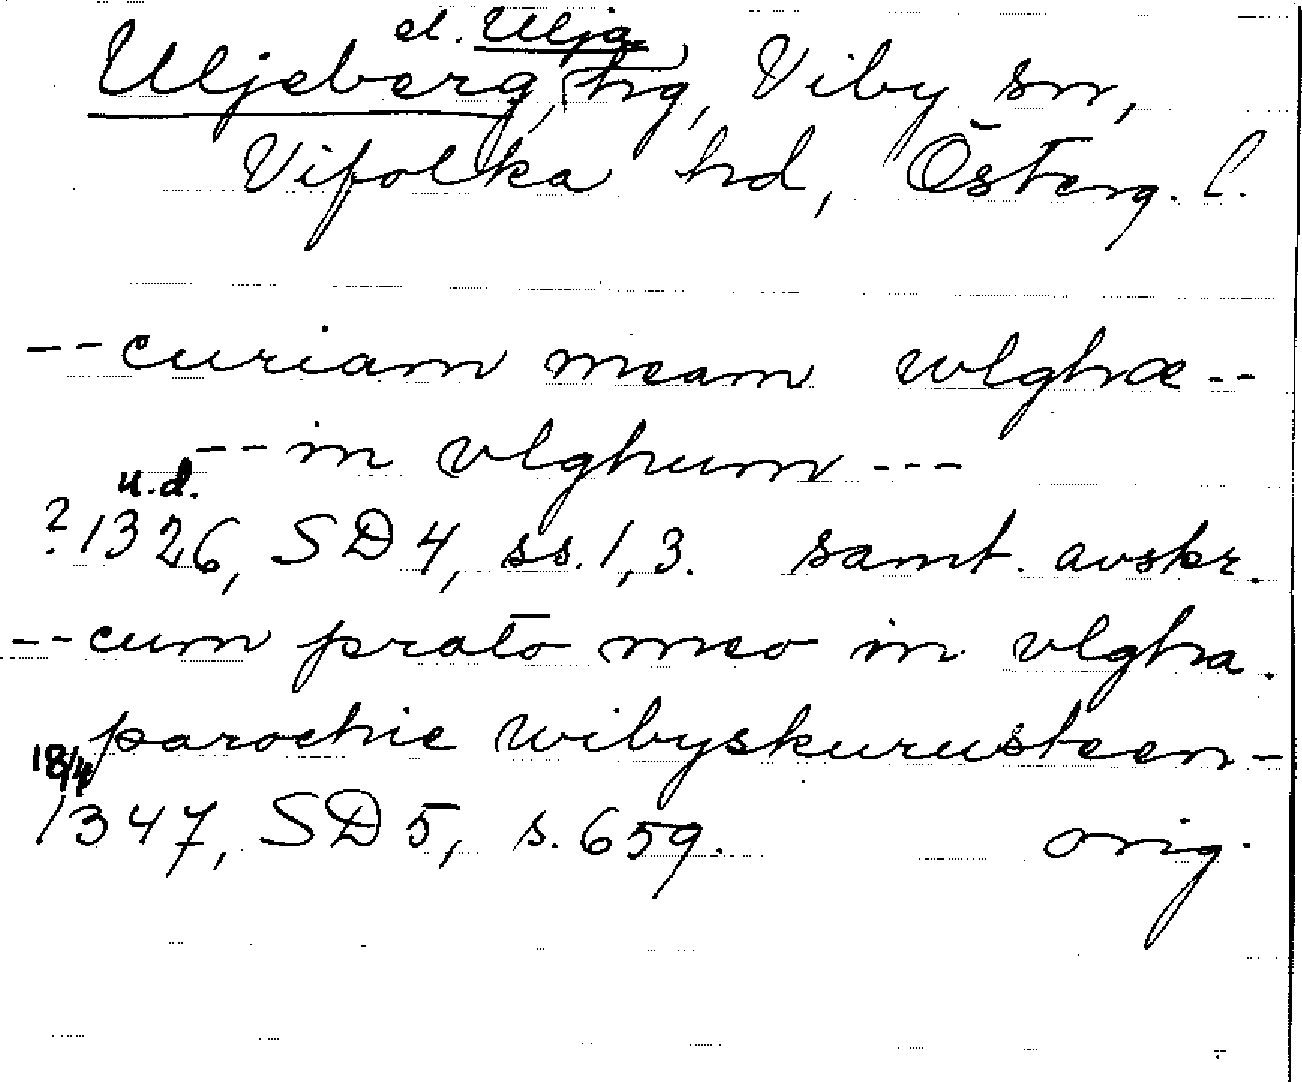 el. Ulja
Uljeberg, hg, Viby sn,
Vifolka hd, Österg. l.
-- curiam meam wlghræ --
-- in vlghum ---
u.d.
? 1326, SD 4, ss. 1, 3. samt. avskr.
-- cum prato meo in vlghra.
parochie wibyskurusteen -
18/4
1347, SD 5, s. 659. orig.